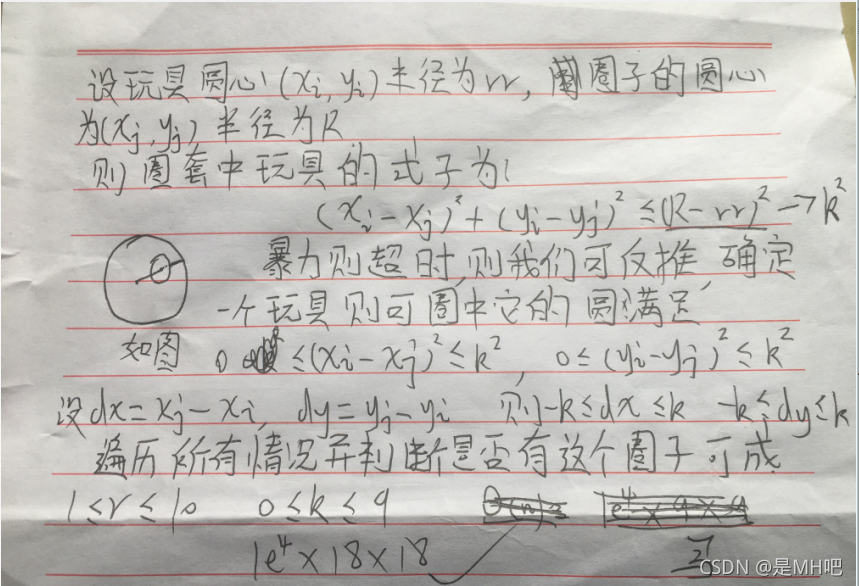 设玩具圆心(xi, yi)半径为rr, 圈子的圆心
为(xj, yj) 半径为R
则圈套中玩具的式子为:
(xi-xj)²+(yi-yj)²≤(R-rr)²→k²
暴力则超时,则我们可反推,确定
一个玩具则可圈中它的圆满足,
如图 0≤(xi-xj)²≤k², 0≤(yi-yj)²≤k²
设dx=xj-xi, dy=yj-yi 则-k≤dx≤k -k≤dy≤k
遍历所有情况并判断是否有这个圈子可成
1≤r≤10 0≤k≤9
1e⁴×18×18
CSDN @是MH吧